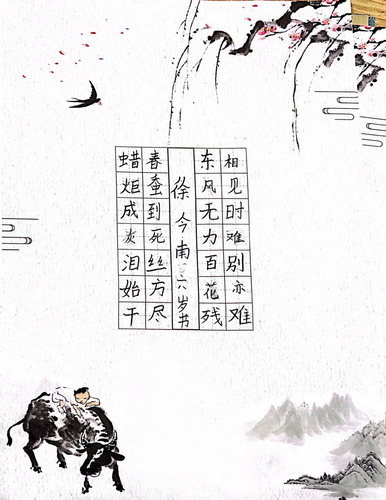 相见时难别亦难
东风无力百花残
徐今南 六岁书
春蚕到死丝方尽
蜡炬成灰泪始干